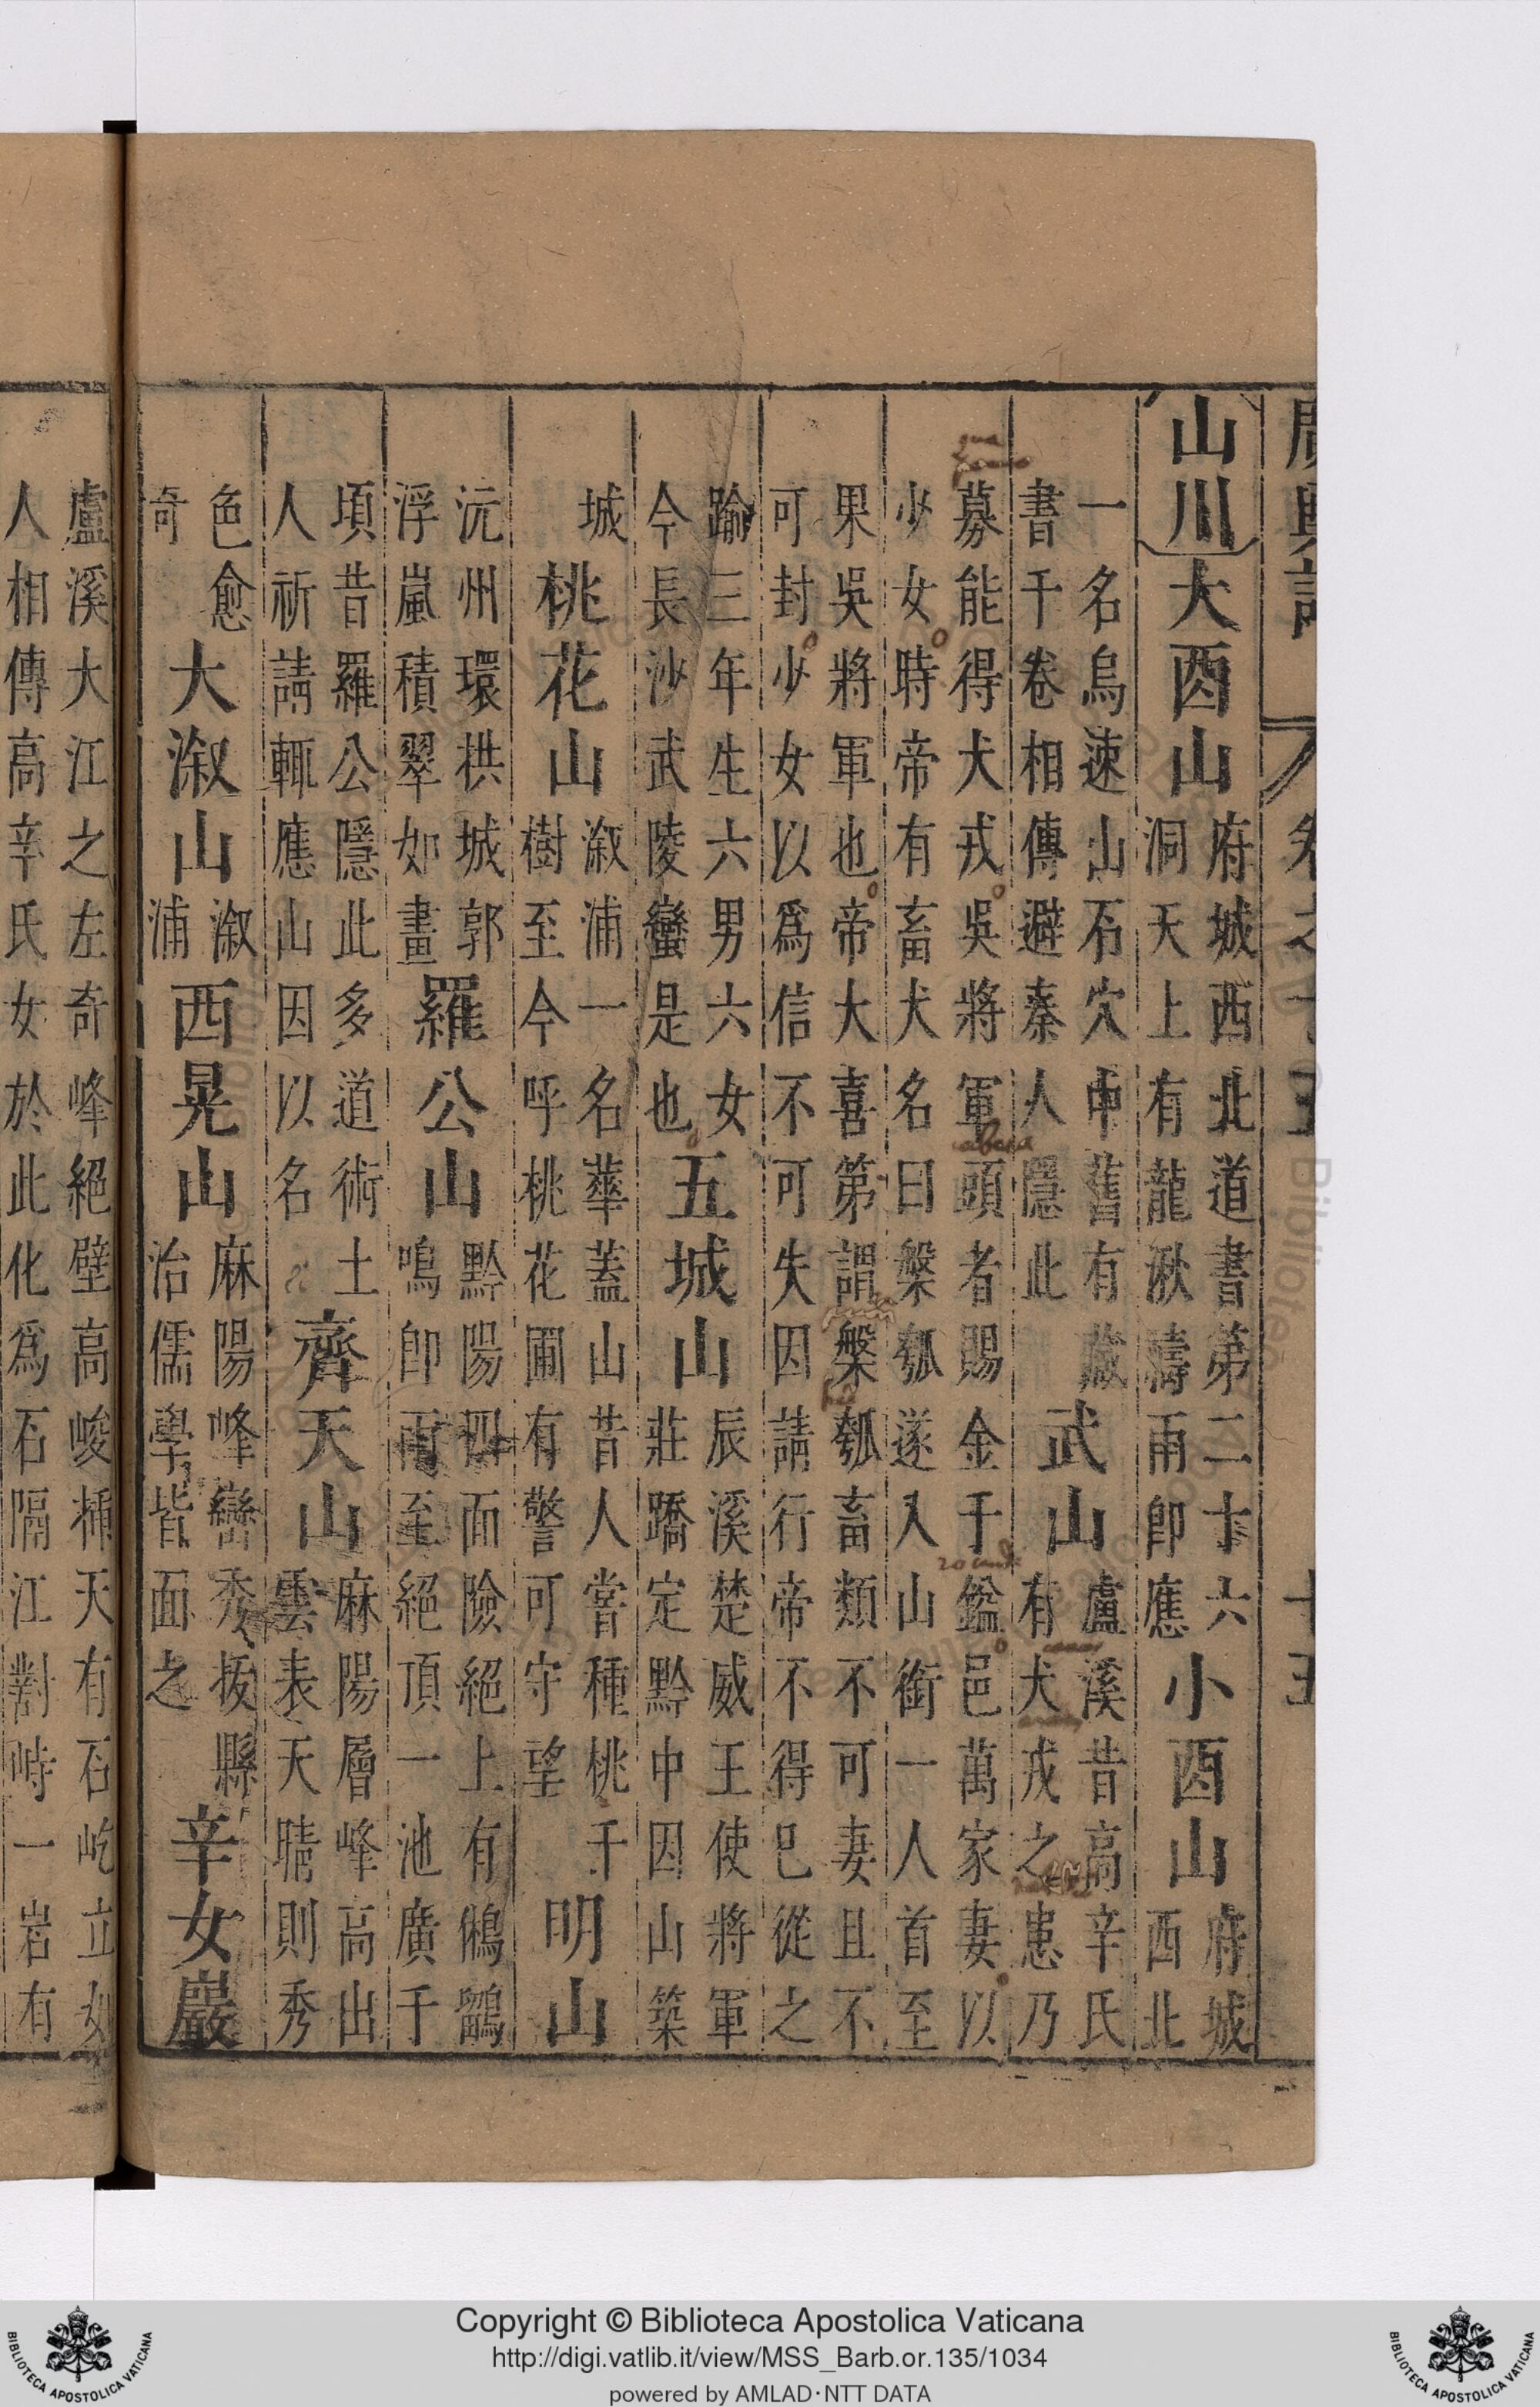 山川大酉山府城西北道書第二十六
洞天上有龍湫濤雨卽應小酉山府城
西北
一名烏速山石穴中舊有藏
書千卷相傳避秦人隱此武山盧溪昔高辛氏
有犬戎之患乃
募能得犬戎吳將軍頭者賜金千鎰邑萬家妻以
少女時帝有畜犬名曰槃瓠遂入山銜一人首至
果吳將軍也帝大喜第謂槃瓠畜類不可妻且不
可封少女以爲信不可失因請行帝不得已從之
踰三年生六男六女
今長沙武陵蠻是也五城山辰溪楚威王使將軍
莊蹻定黔中因山築
城桃花山溆浦一名華蓋山昔人嘗種桃千
樹至今呼桃花圃有警可守望明山
沅州環拱城郭
浮嵐積翠如畫羅公山黔陽四面險絕上有鵂鶹
鳴卽雨至絕頂一池廣千
頃昔羅公隱此多道術土
人祈請輒應山因以名齊天山麻陽層峰高出
雲表天晴則秀
色愈
奇大溆山溆
浦西晃山麻陽峰巒秀拔縣
治儒學皆面之辛女巖
盧溪大江之左奇峰絕壁高峻插天有石屹立如
人相傳高辛氏女於此化爲石隔江對峙一岩有
Copyright © Biblioteca Apostolica Vaticana
http://digi.vatlib.it/view/MSS_Barb.or.135/1034
powered by AMLAD·NTT DATA
BIBLIOTECA APOSTOLICA VATICANA
BIBLIOTECA APOSTOLICA VATICANA